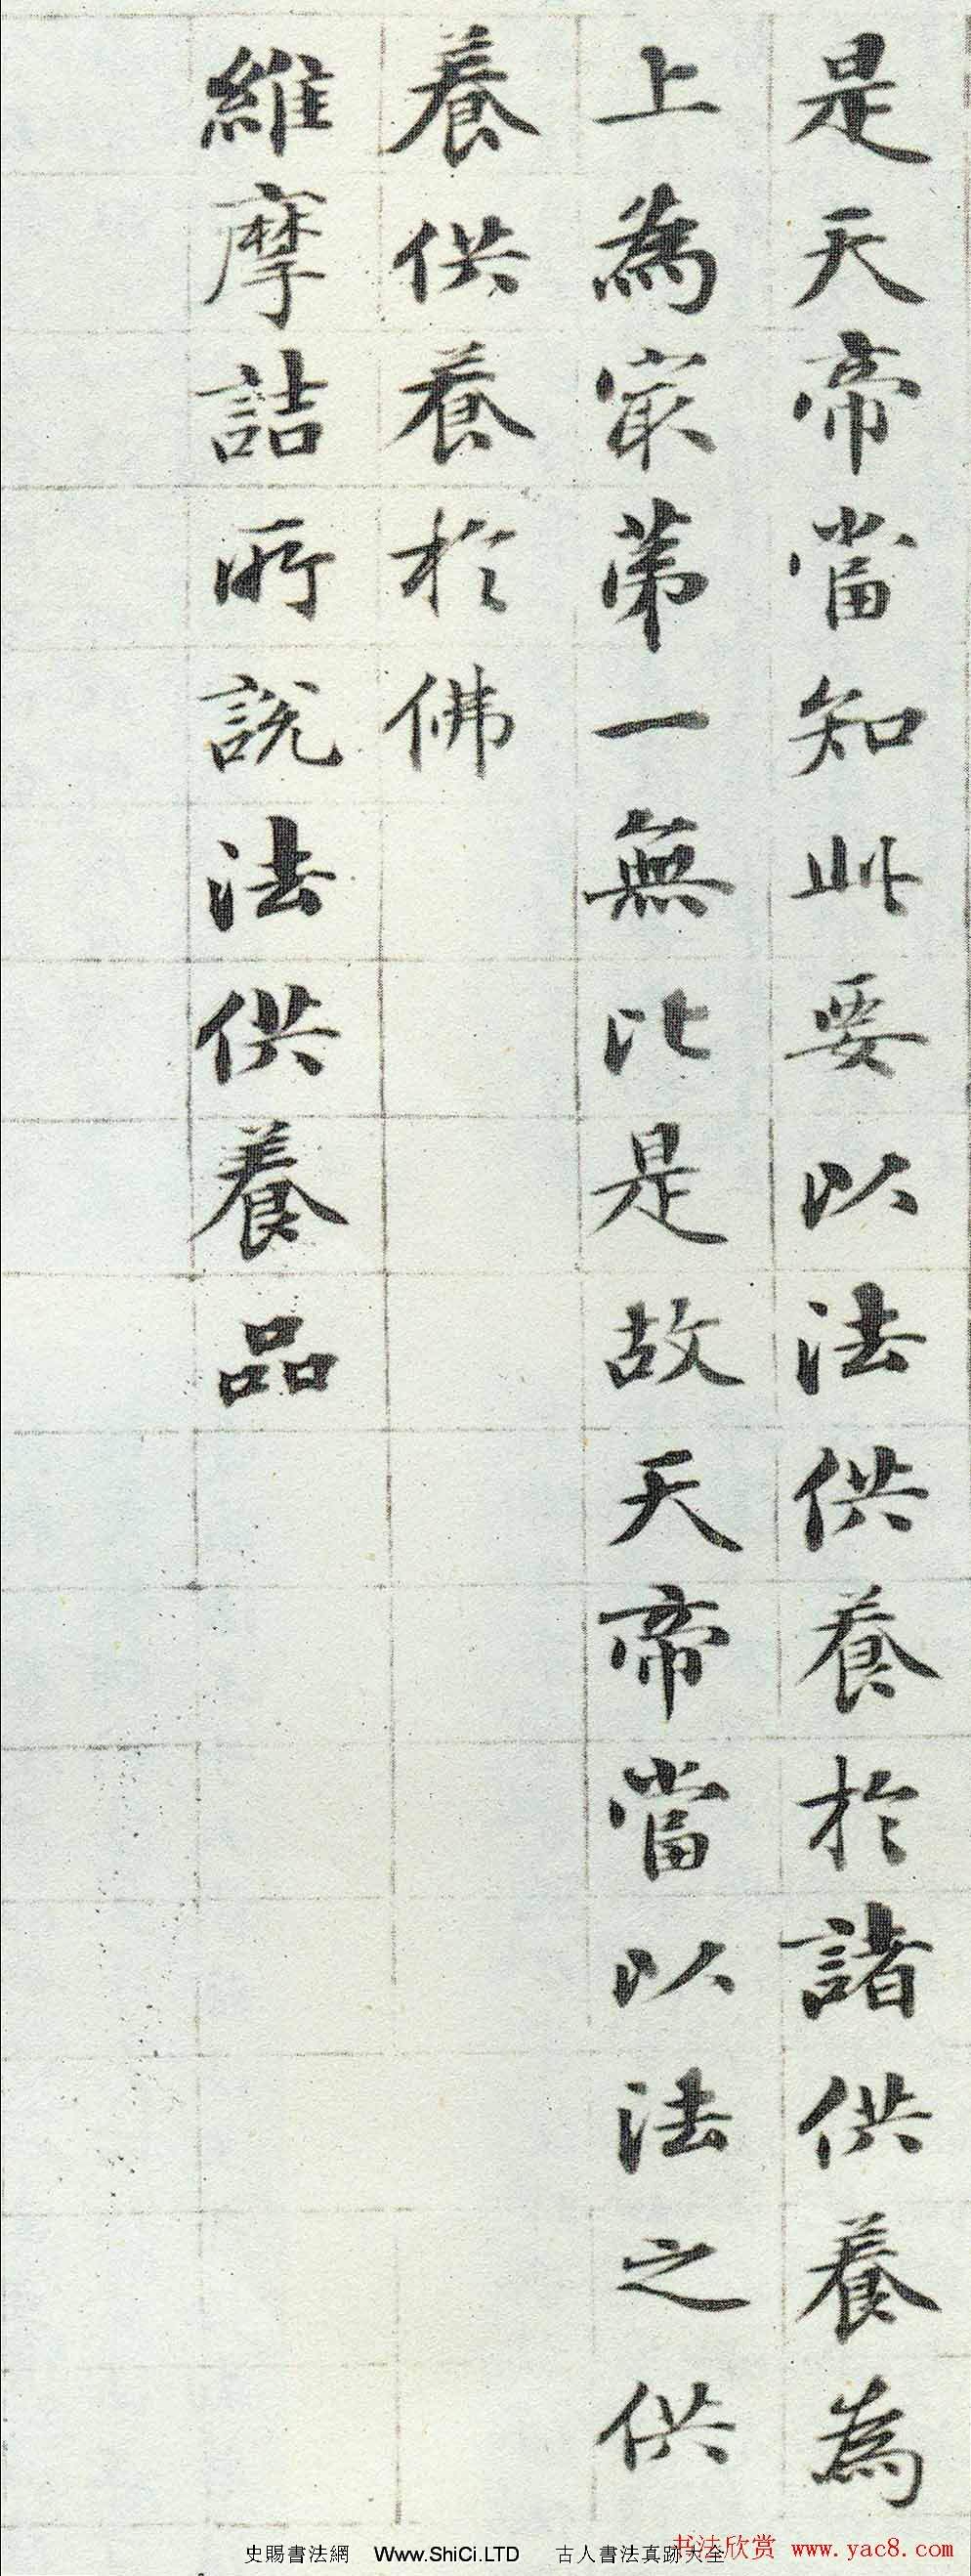 是天帝當知此要以法供養於諸供養為
上為最第一無比是故天帝當以法之供
養供養於佛
維摩詰所說法供養品
史賜書法網 Www.ShiCi.LTD 古人書法真跡大全
书法欣赏 www.yac8.com